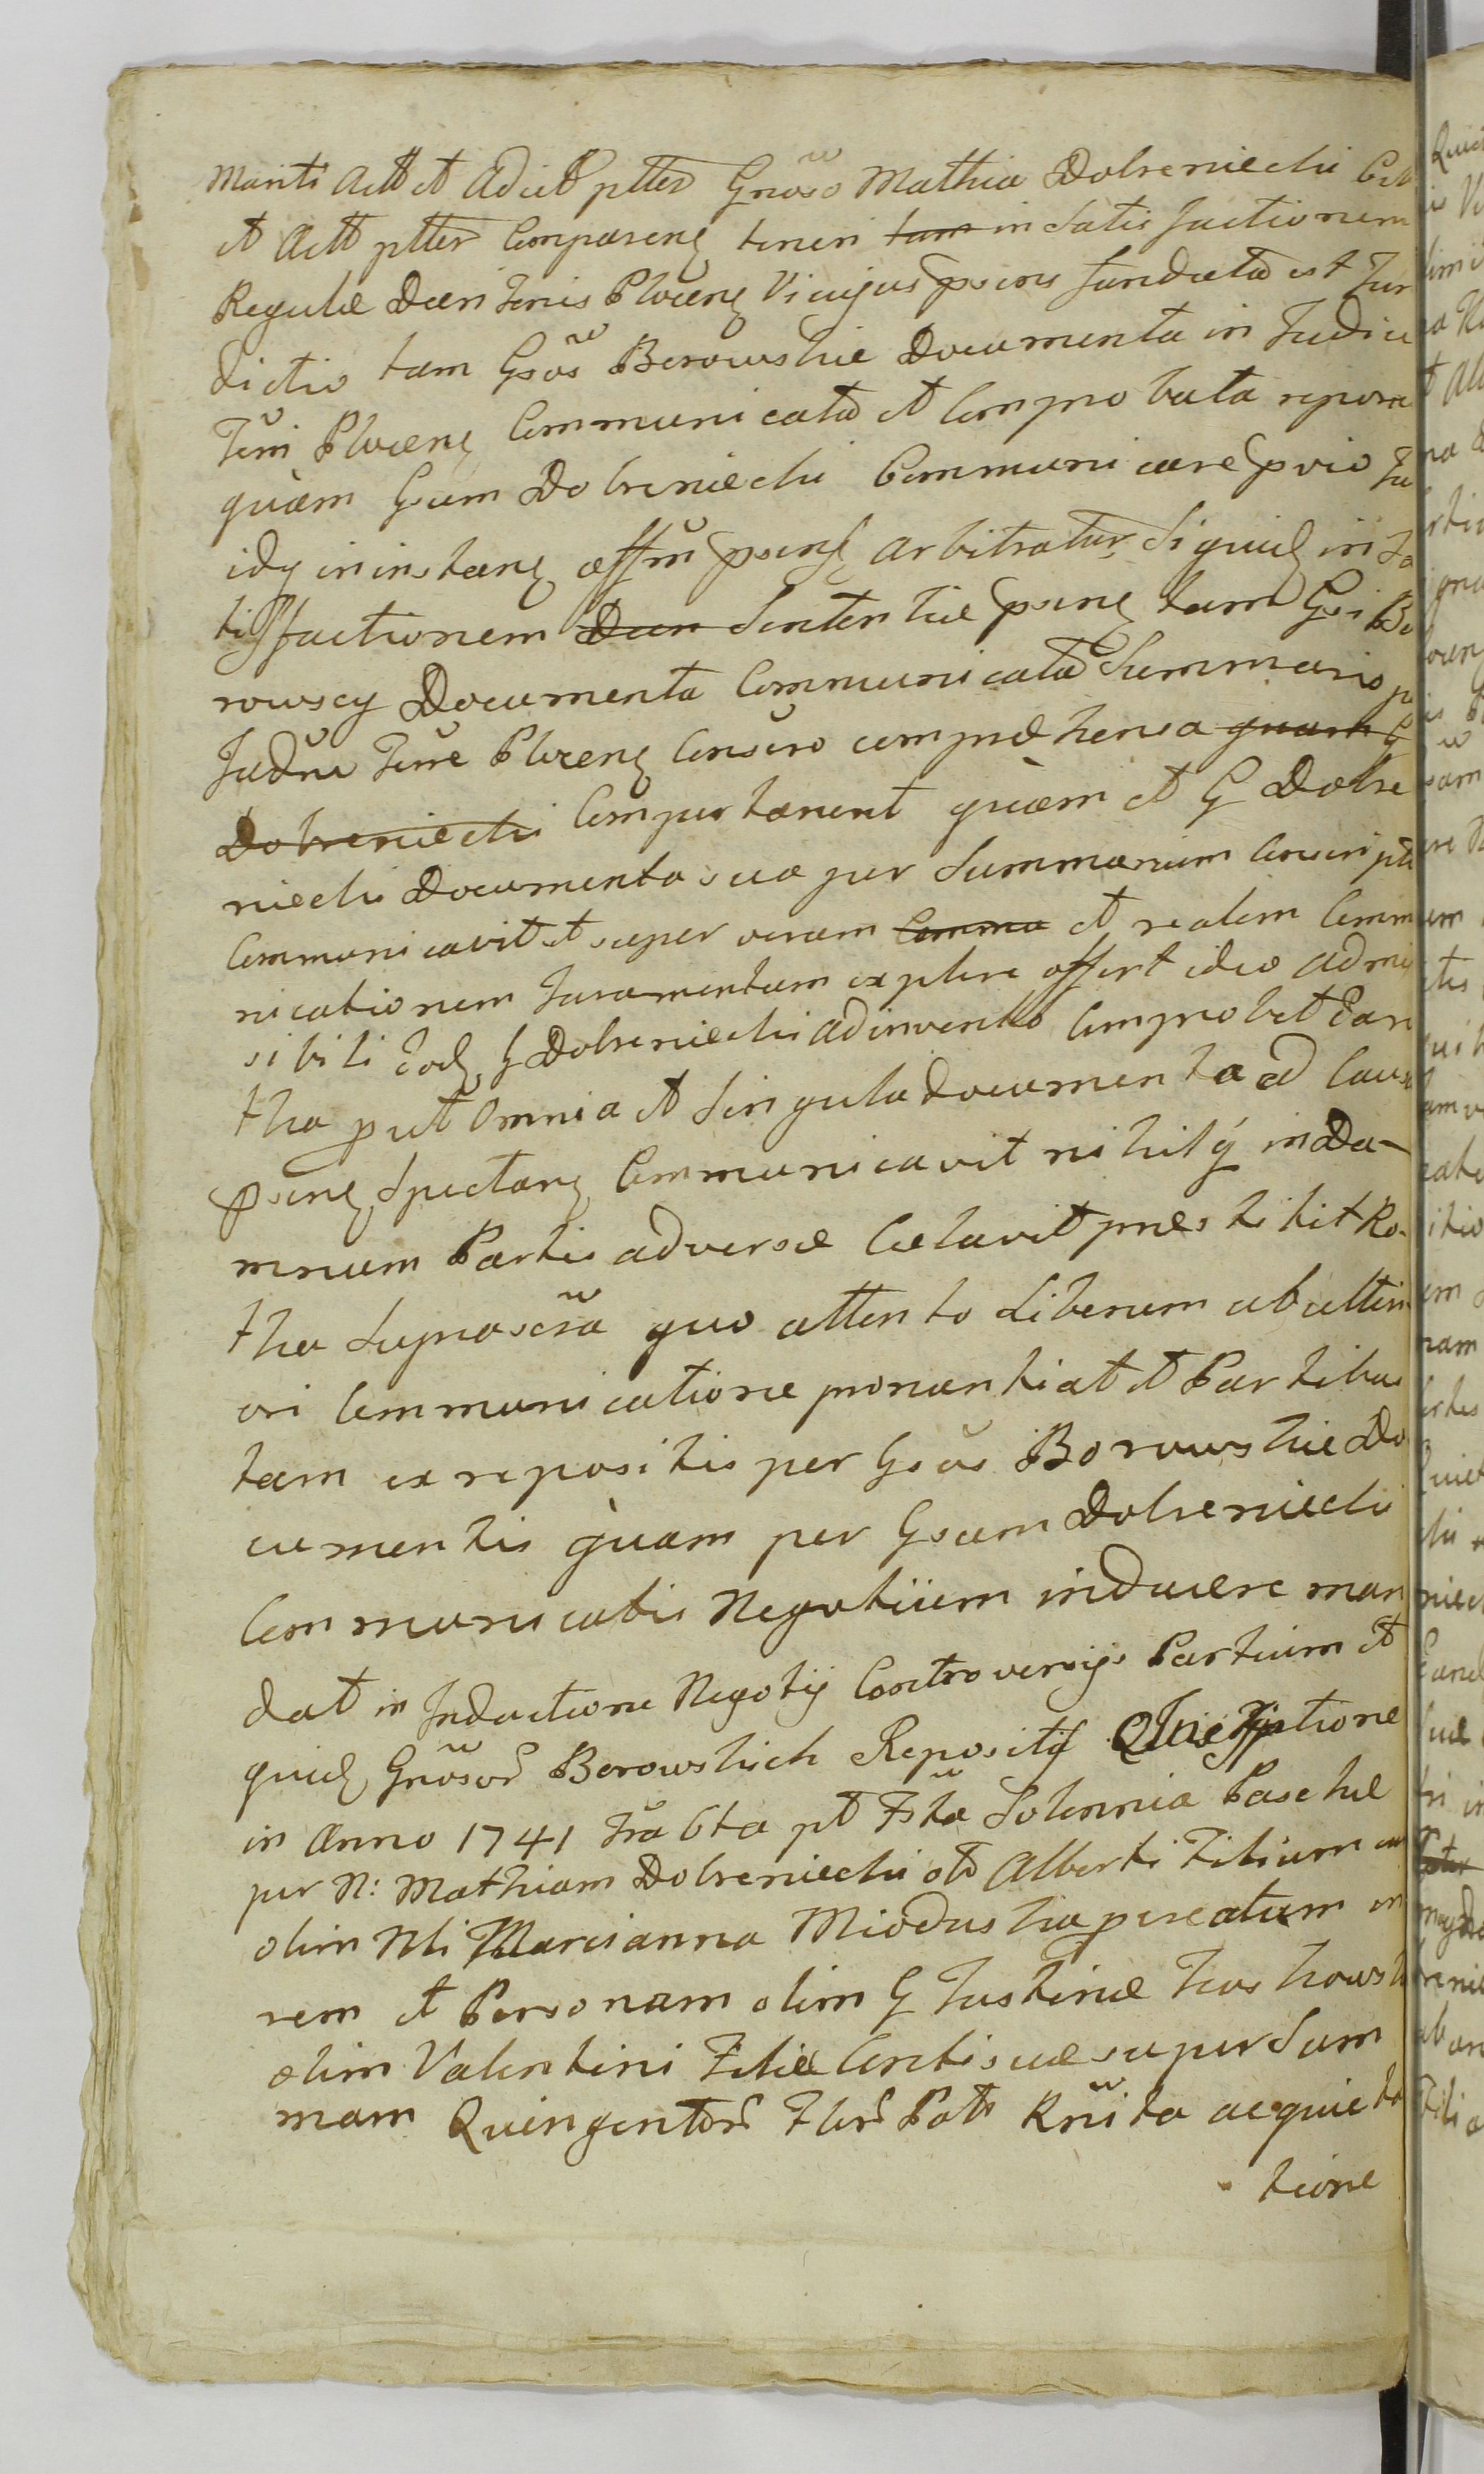 manti Actt et Adcitt ptter Gnoso Mathia Dobreniecki Citt
et Actt ptter Comparenq teneri tam in Satis factionem
Regulæ Decri Terris Plocenq Vi cujus psens fundata est Jur
dictio tam Gsos Borowskie Documenta in Judicio
Terri Plocenq Communicata et Comprobata reponere
quàm Gsum Dobreniecki Communicare pvio Ju
idq in instanq affru psenq arbitratur, Siquid in Sa
tisfactionem Decr Sententiæ psenq tam Gsi Bo
rowscy Documenta Communicata Summario p
Judm Terre Plocenq Conscro comprehensa quam G
Dobreniecki Comportarent quàm et G Dobre
niecki Documenta sua per Summarium Conscripta
Communicavit et super veram Commu et realem Commu
nicationem Juramentum explere offert ideo admis
sibili eodq G Dobreniecki adinvento Comprobet Ea Ro
tha put Omnia et Singula documenta ad Causam
psenq Spectanq Communicavit nihilq in Da-
mnum Partis adversæ Celavit præstitit Ro-
tha Suprascra quo attento Liberum ab ulteri
ori Communicatione pronuntiat et Partibus
tam ex repositis per Gsos Borowskie Do
cumentis quàm per Gsum Dobreniecki
Communicatis Negotium inducere man
dat in Inductione Negotij Controversijs Partium et
quid Gnosor Borowskich Repositij Inscriptione
in Anno 1741 Fra 6ta pt Fsta Solennia Paschæ
per N: Mathiam Dobreniecki olo Alberti Filium cum
olim Nli Marianna Mioduska pcreatum in
rem et Personam olim G Justinæ Koskowska
olim Valentini Filiæ Contis suæ super Sum
mam Quingentor Flor Pol Rnita acquieta
tione